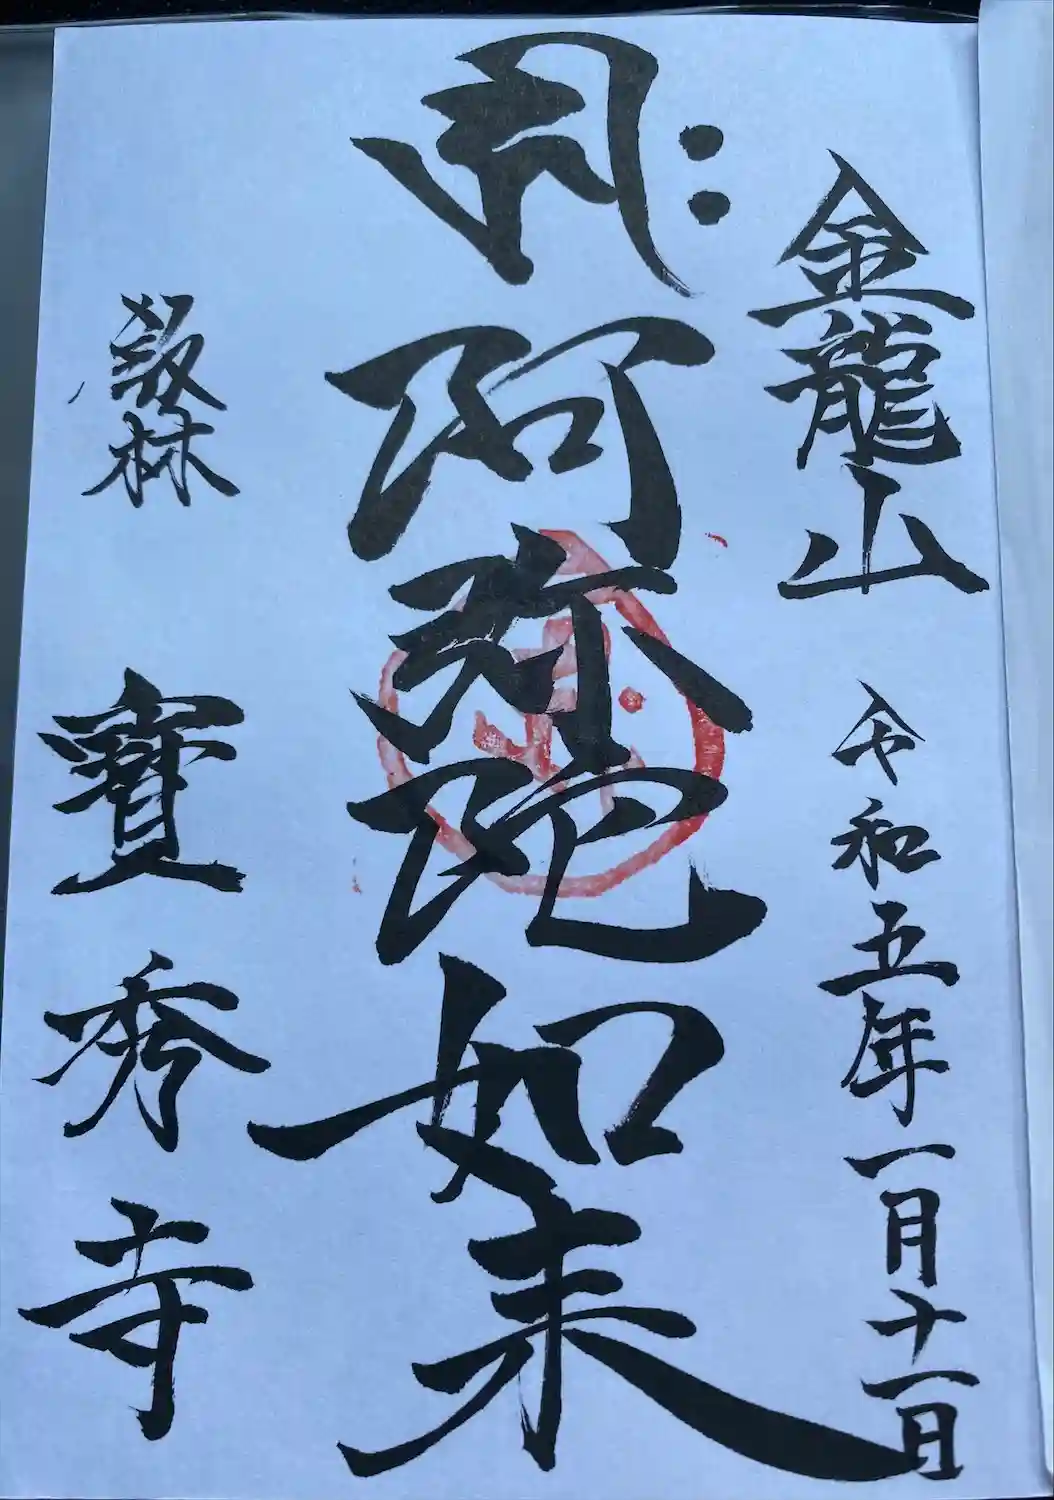 金龍山
令和五年一月十一日
𑖮𑖿𑖨𑖱𑖾
阿弥陀如来
教林
寶秀寺